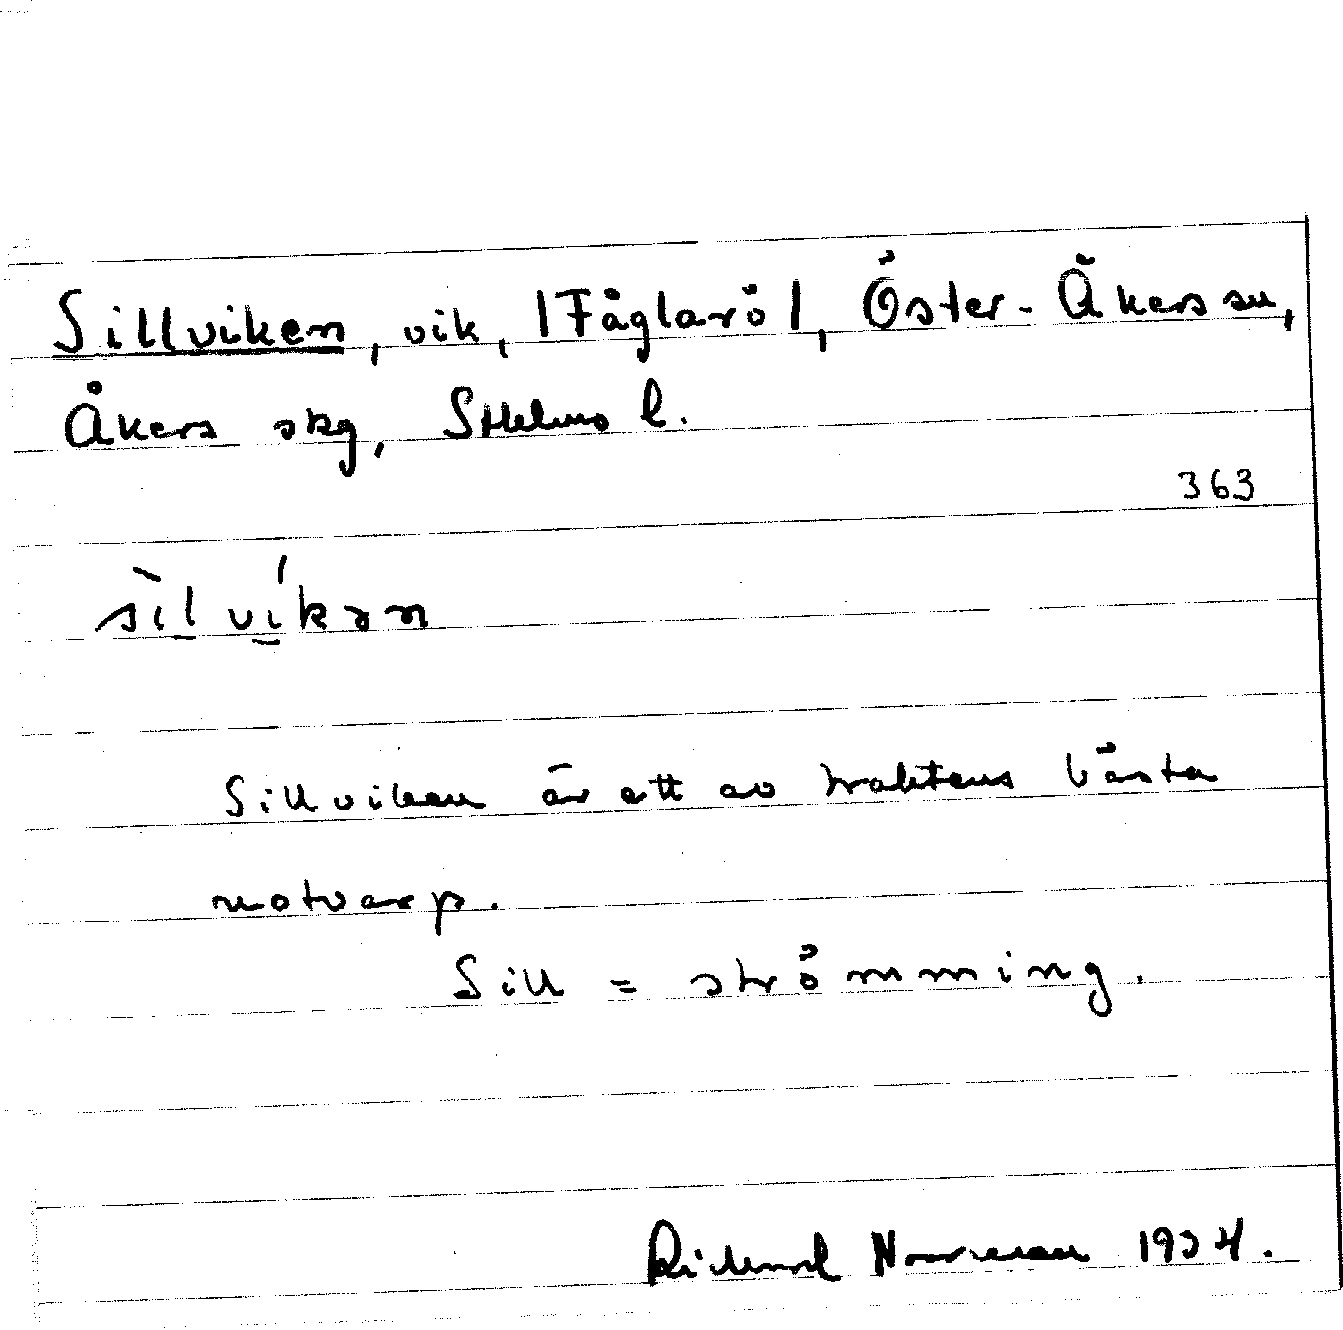 Sillviken, vik, |Fåglarö|, Öster-Åkers sn,
Åkers skg, Sthlms l.
363
sìlvíkən
Sillviken är ett av traktens bästa
notvarp.
Sill = strömming.
Rickard 1934.